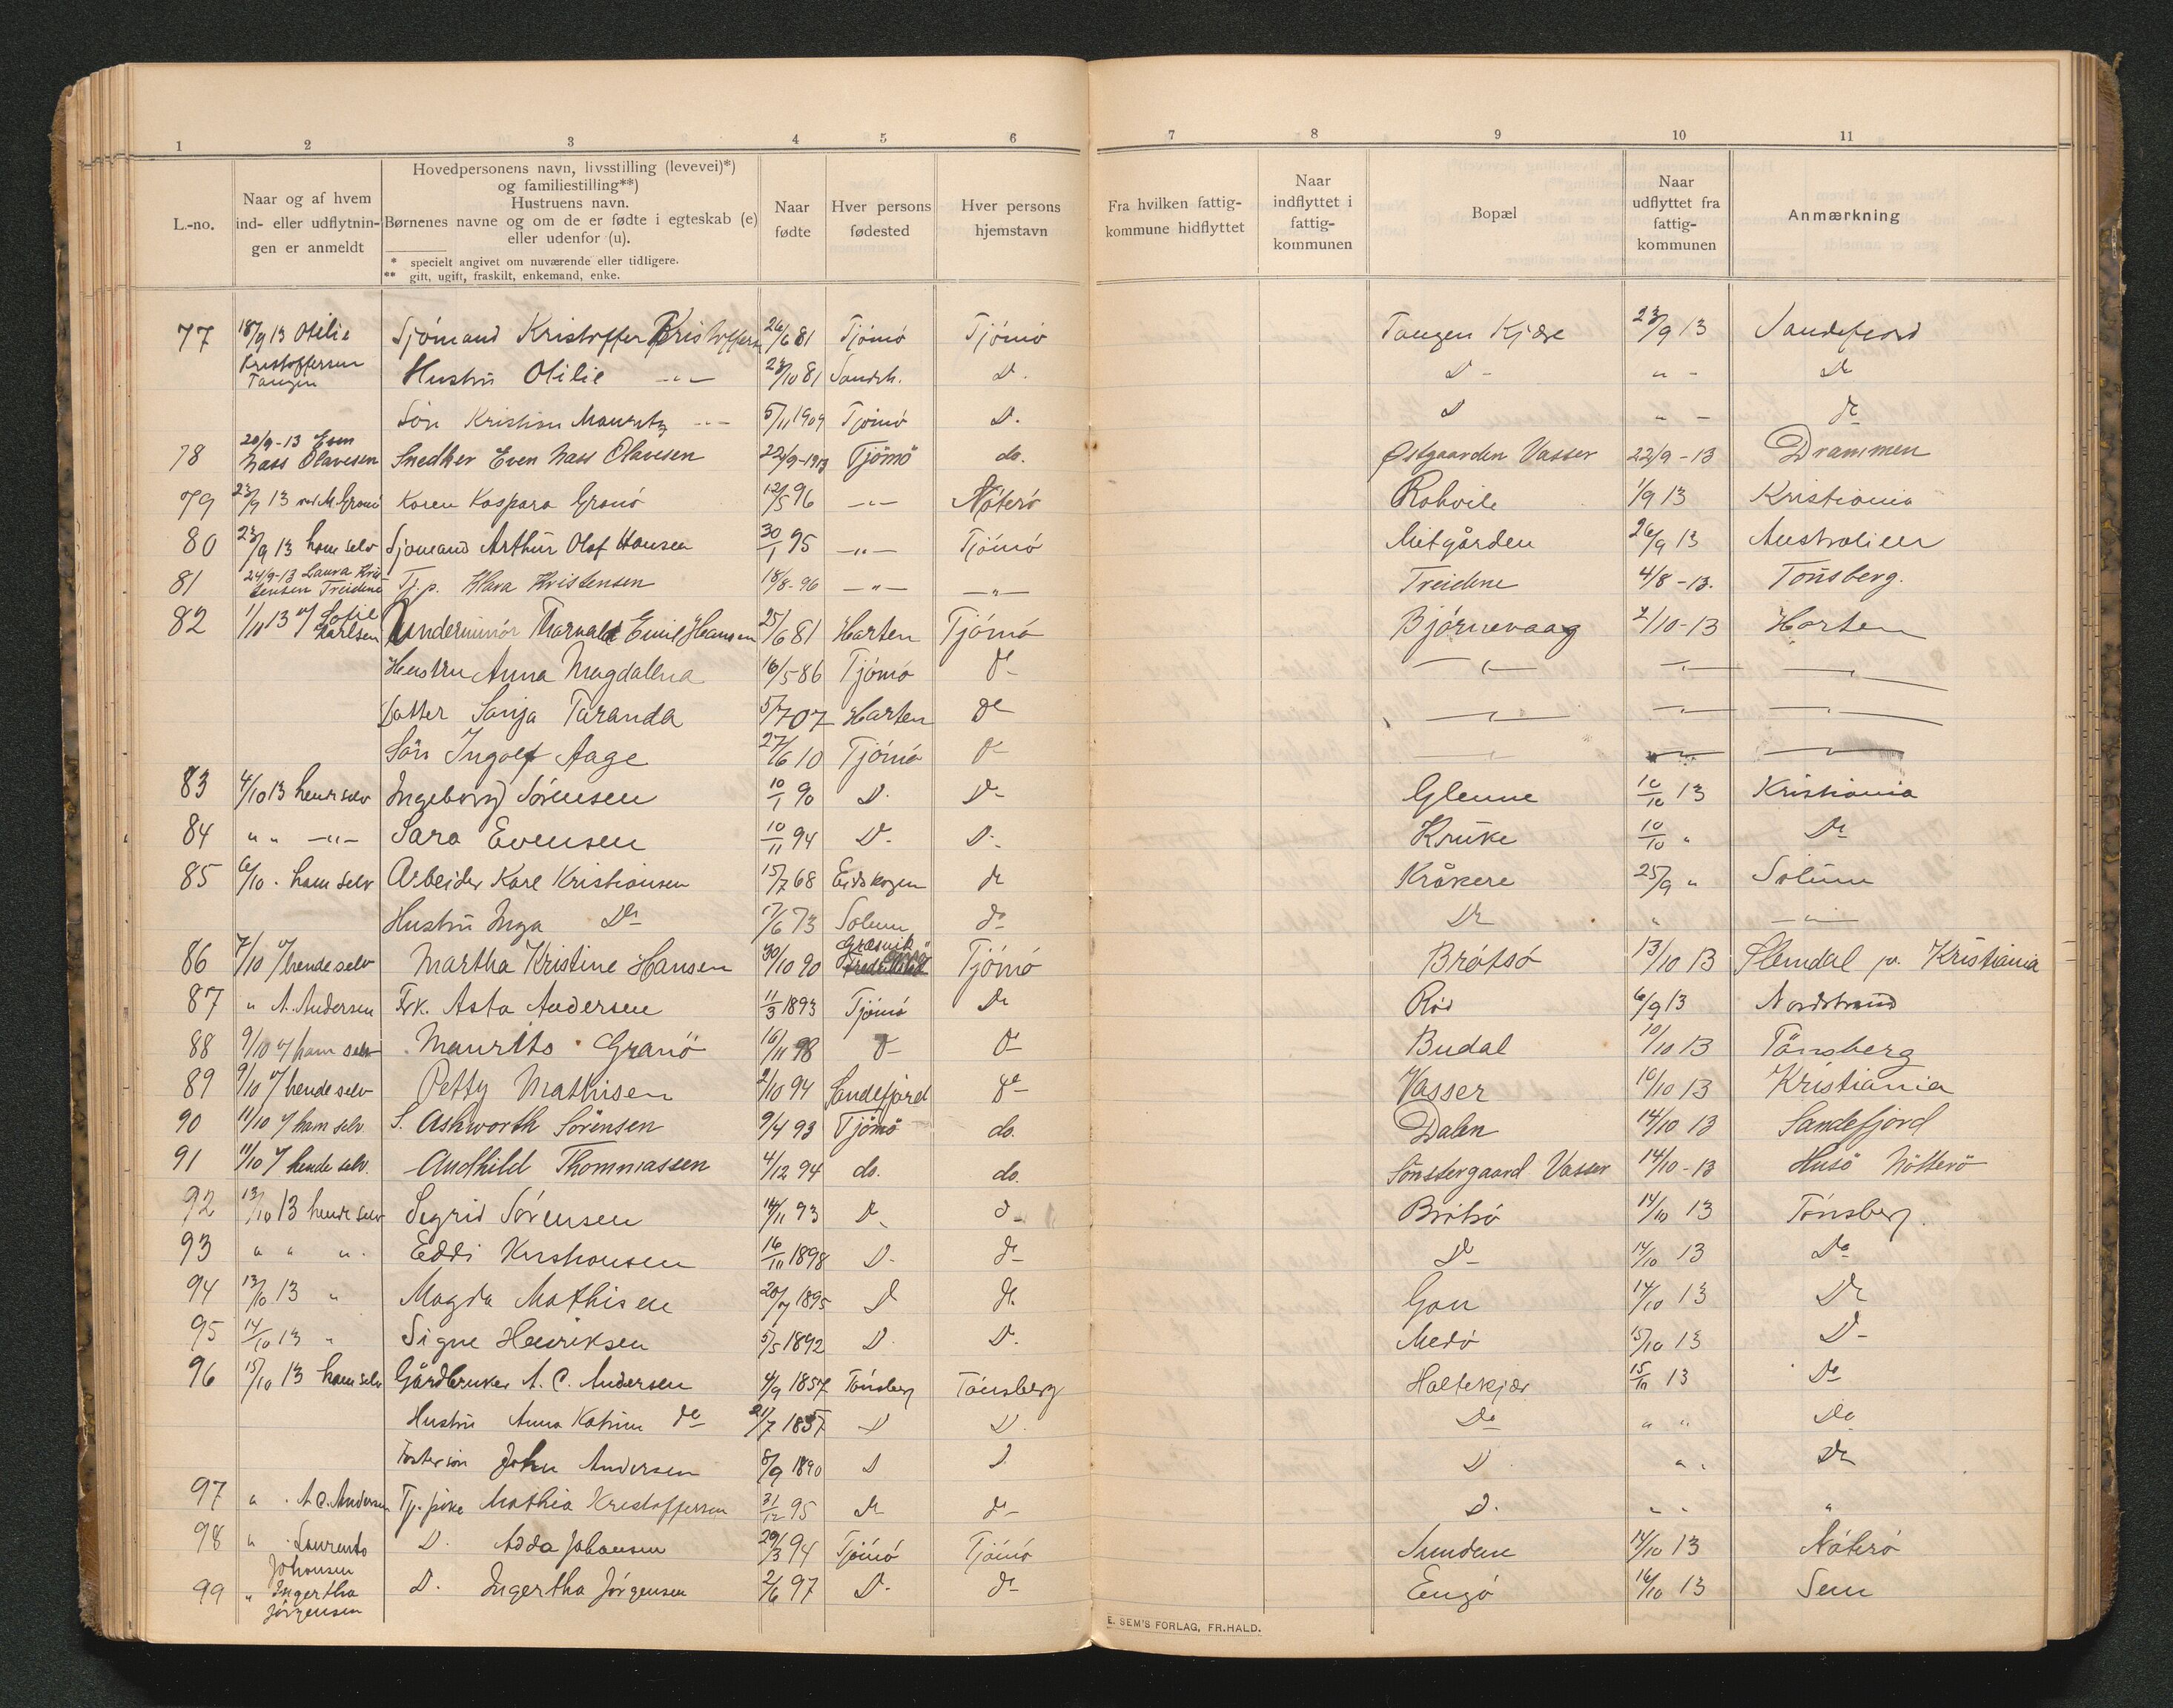 1 2 3 4 5 6 7 8 9 10 11
L.-no.
Naar og af hvem
ind- eller udflytnin-
gen er anmeldt
Hovedpersonens navn, livsstilling (levevei)*)
og familiestilling**)
Hustruens navn.
Børnenes navne og om de er fødte i egteskab (e)
eller udenfor (u).
* specielt angivet om nuværende eller tidligere.
** gift, ugift, fraskilt, enkemand, enke.
Naar
fødte
Hver persons
fødested
Hver persons
hjemstavn
Fra hvilken fattig-
kommune hidflyttet
Naar
indflyttet i
fattig-
kommunen
Bopæl
Naar
udflyttet fra
fattig-
kommunen
Anmærkning
77 18/9 13 Otilie Sjömand Kristoffer Kristoffersen 26/6 81 Tjömö Tjömö Tangen Kjære 23/9 13 Sandefiord
Kristoffersen
Tangen Hustru Otilie -"- 23/10 81 Sandeh. D. D - " - Do
Sön Kristian Mauritz -"- 5/11 1909 Tjömö D. D " - do
20/9-13 Even
78 Nass Olavesen Snedker Even Nass Olavesen 22/9-1913 Tjömö do. Østgaarden Vasser 22/9-13 Drammen
79 23/9 13 M. Granö Karen Kaspara Granö 12/5 96 -"- Nöterö 1/9 13 Kristiania
80 23/9 13 ham selv Sjömand Arthur Olaf Hansen 30/1 95 -"- Tjömö Mitgården 26/9 13 Australien
81 24/9-13 Laura Kris-
tensen Treidene Tj.p. Klara Kristensen 18/8-96 -"- -"- Treidene 4/8-13. Tönsberg.
82 1/10 13 af Sofie
Karlsen Underminör Tharvald Emil Hansen 25/6 81 Harten Tjömö Björnevaag 2/10-13 Horten
Hustru Anna Magdalena 16/5-86 Tjömö do -"- -"- -"-
Datter Sanja Taranda 5/7 07 Harten do -"- -"- -"-
Sön Ingolf Aage 27/6 10 Tjömö do -"- -"- -"-
83 4/10 13 hende selv Ingeborg Sörensen 10/1 90 D. Do Glenne 10/10 13 Kristiania
84 " " -"- Sara Evensen 10/11 94 D. D. Kruke 10/10 " Do
85 6/10 . ham selv Arbeider Karl Kristiansen 15/7 68 Eidskogen do Kråkere 25/9 " Solum
Hustru Inga Do 17/6 73 Solum do Do " -"-
86 7/10 af hende selv Martha Kristine Hansen 30/10 90 Græsvik Tjömö Brötsö 13/10 13 Slemdal pr. Kristiania
87 " A. Andersen Frk. Asta Andersen 11/3 1893 Tjömö Do Röd 6/9 13 Nordstrand
88 9/10 af ham selv Maurits Granö 16/11 98 D- D- Budal 10/10 13 Tönsberg
89 9/10 af hende selv Petty Mathisen 2/10 94 Sandefjord do Vasser 10/10 13 Kristiania
90 11/10 af ham selv S. Ashworth Sörensen 9/4 93 Tjömö do. Dalen 14/10 13 Sandefjord
91 11/10 af hende selv. Andhild Thommassen 4/12 94 do. do. Sönstergaard Vasser 14/10-13 Husö Nötterö
92 13/10 13 hende selv Sigrid Sörensen 14/11 93 D- d- Brötsö 14/10 13 Tönsberg.
93 " " ". Eddi Kristiansen 16/10 1898 D. do Do 14/10 13 Do
94 13/10 13 " Magda Mathisen 20/7 1895 D do Gon 14/10 13 Do
95 14/10 13 " Signe Henriksen 5/5 1892 D. D. Medö 15/10 13 D-
96 15/10 13 ham selv Gårdbruker A. C. Andersen 4/9 1857 Tönsberg Tönsberg Holtekjær 15/10 13 Do
Hustru Anna Katrine do 21/7 1857 D D. Do " " Do
Fostersön John Andersen 8/9 1890 D D D " . Do
97 " . A C. Andersen Tj. pike Mathia Kristoffersen 31/12 95 do do D. " " "
98 " . Laurents
Johansen D. Adda Johansen 29/3 94 Tjömö Tjömö Sundene 14/10 13 Nöterö
99 " Ingertha
Jörgensen D. Ingertha Jörgensen 2/6 97 D. do Engö 16/10 13 Sem
E. SEM'S FORLAG, FR.HALD.